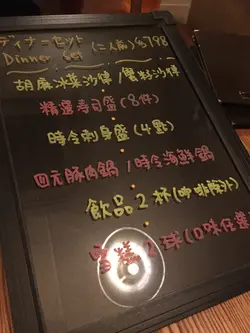 ディナーセット (二人前) $798
Dinner Set
胡麻冰菜沙律 / 蟹籽沙律
精選壽司盛 (8件)
時令刺身盛 (4點)
四元豚肉鍋 / 時令海鮮鍋
飲品2杯 (咖啡除外)
雪糕2球 (口味任選